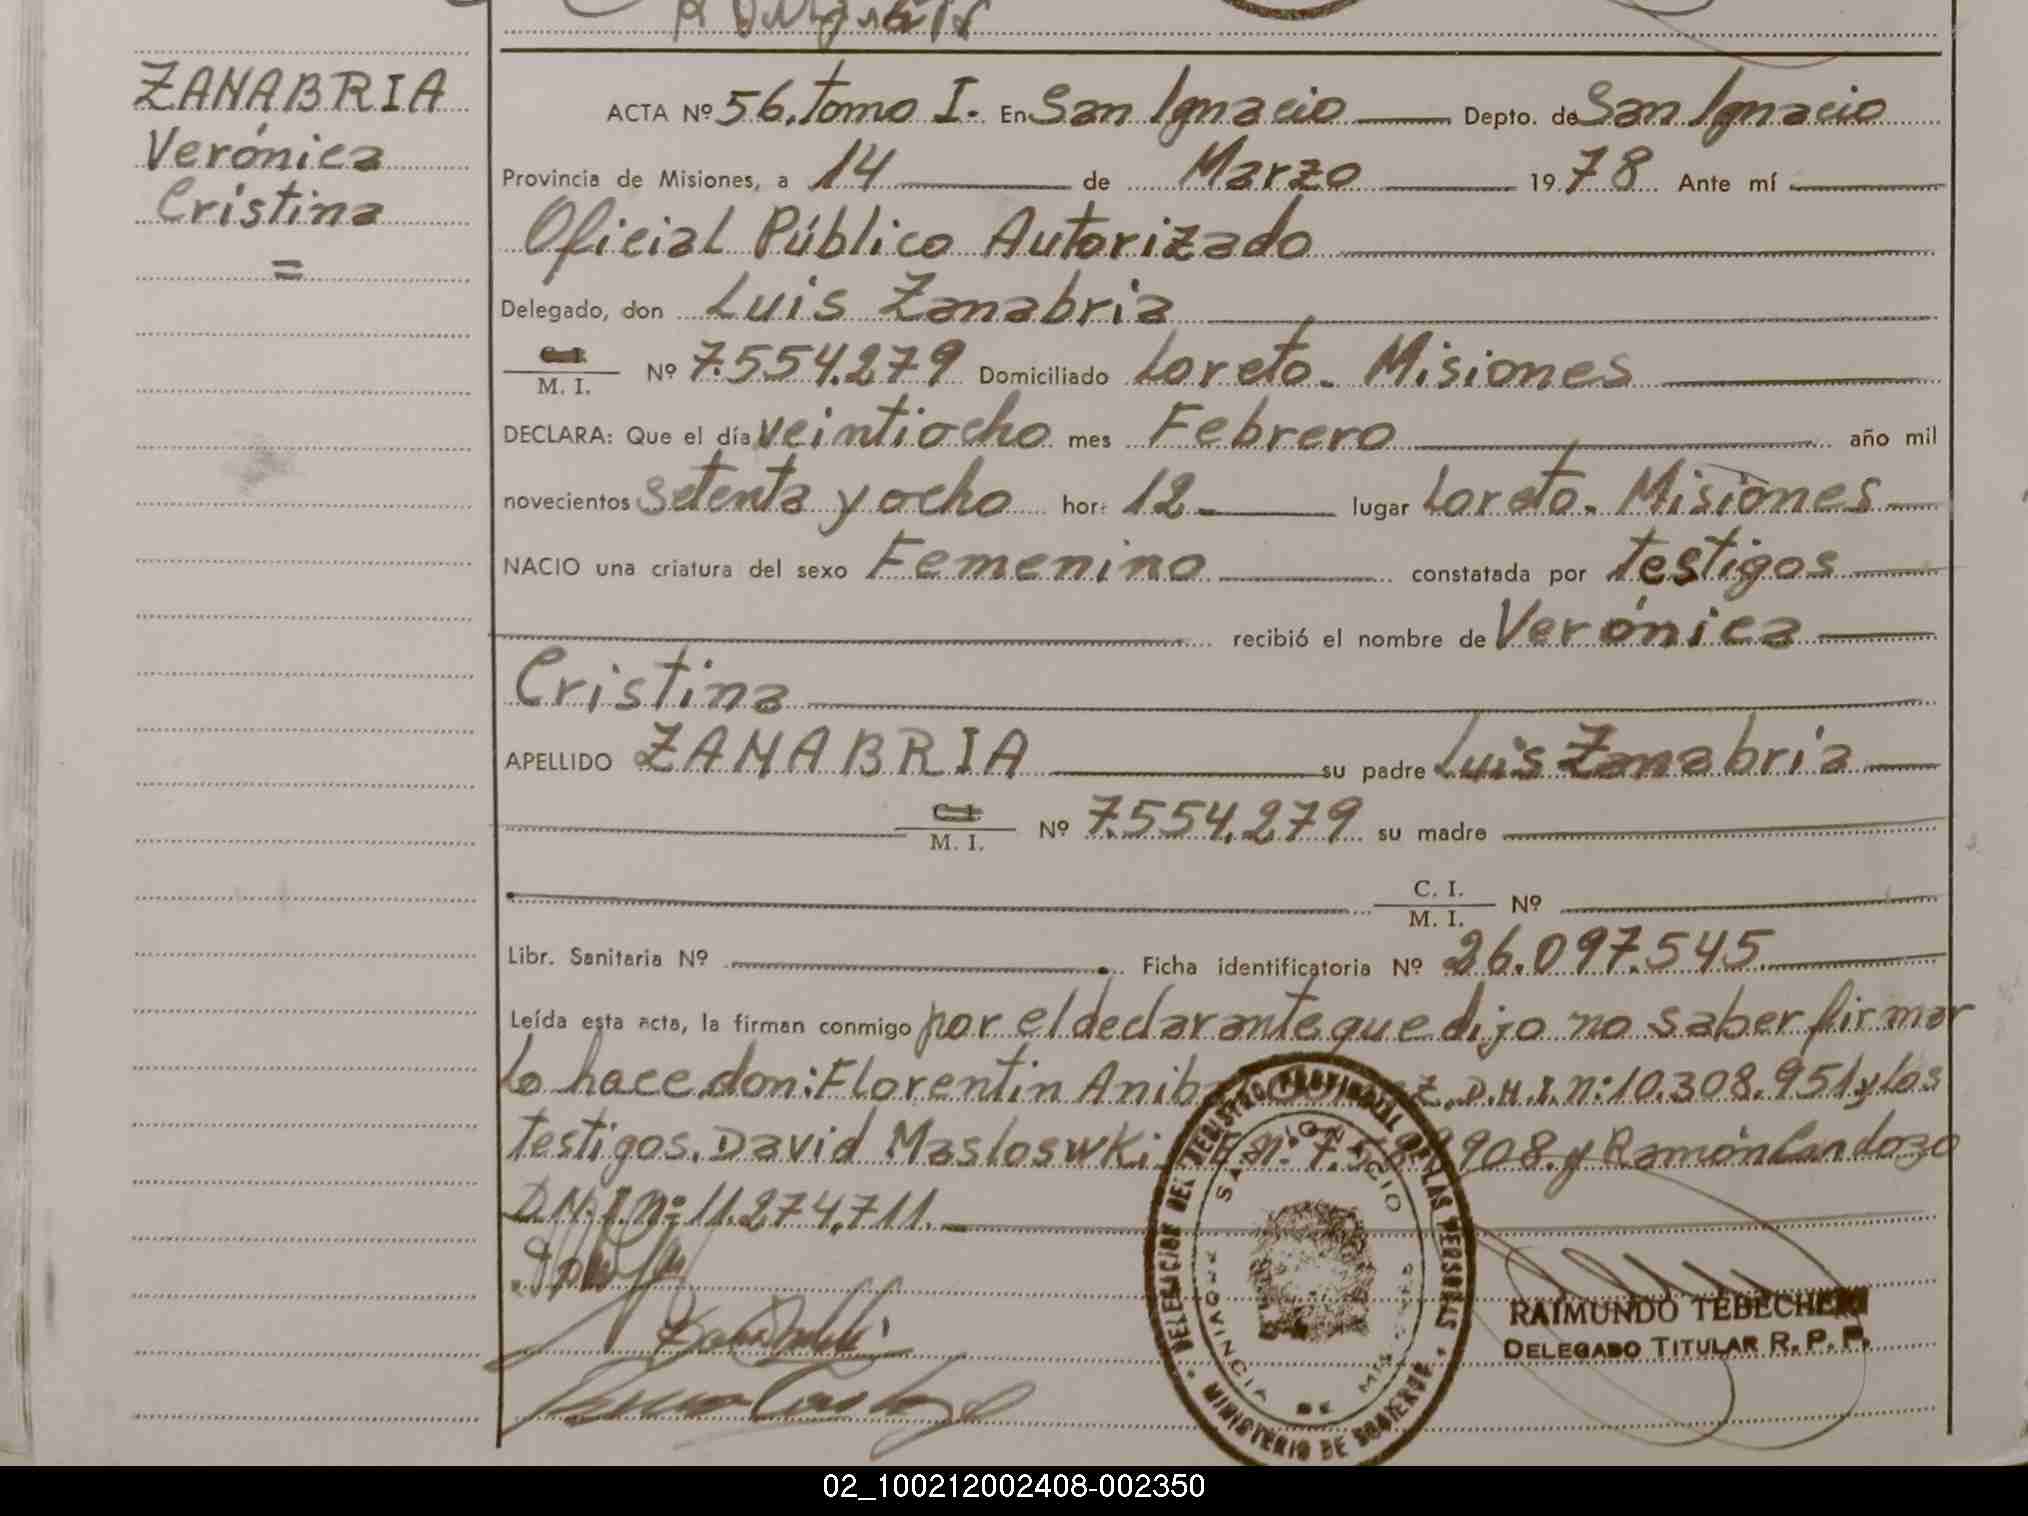 ZANABRIA
Verónica
Cristina
=
ACTA Nº 56. tomo I. En San Ignacio Depto. de San Ignacio
Provincia de Misiones, a 14 de Marzo 1978 Ante mí
Oficial Público Autorizado
Delegado, don Luis Zanabria
C. I.
M. I. Nº 7.554.279 Domiciliado Loreto. Misiones
DECLARA: Que el día veintiocho mes Febrero año mil
novecientos setenta y ocho hor: 12 lugar Loreto. Misiones
NACIO una criatura del sexo Femenino constatada por testigos
recibió el nombre de Verónica
Cristina
APELLIDO ZANABRIA su padre Luis Zanabria
C. I.
M. I. Nº 7.554.279 su madre
C. I.
M. I. Nº
Libr. Sanitaria Nº Ficha identificatoria Nº 26.097.545
Leída esta acta, la firman conmigo por el declarante que dijo no saber firmar
lo hace don: Florentin D.N.I. n: 10.308.951 y los
testigos. David Masloswki y Ramón Cardozo
D.N.I. n: 11.274.711.
DELEGACION DEL REGISTRO PROVINCIAL DE LAS PERSONAS
SAN IGNACIO
PROVINCIA DE MISIONES
MINISTERIO DE GOBIERNO
RAIMUNDO
DELEGADO TITULAR R. P. P.
02_100212002408-002350